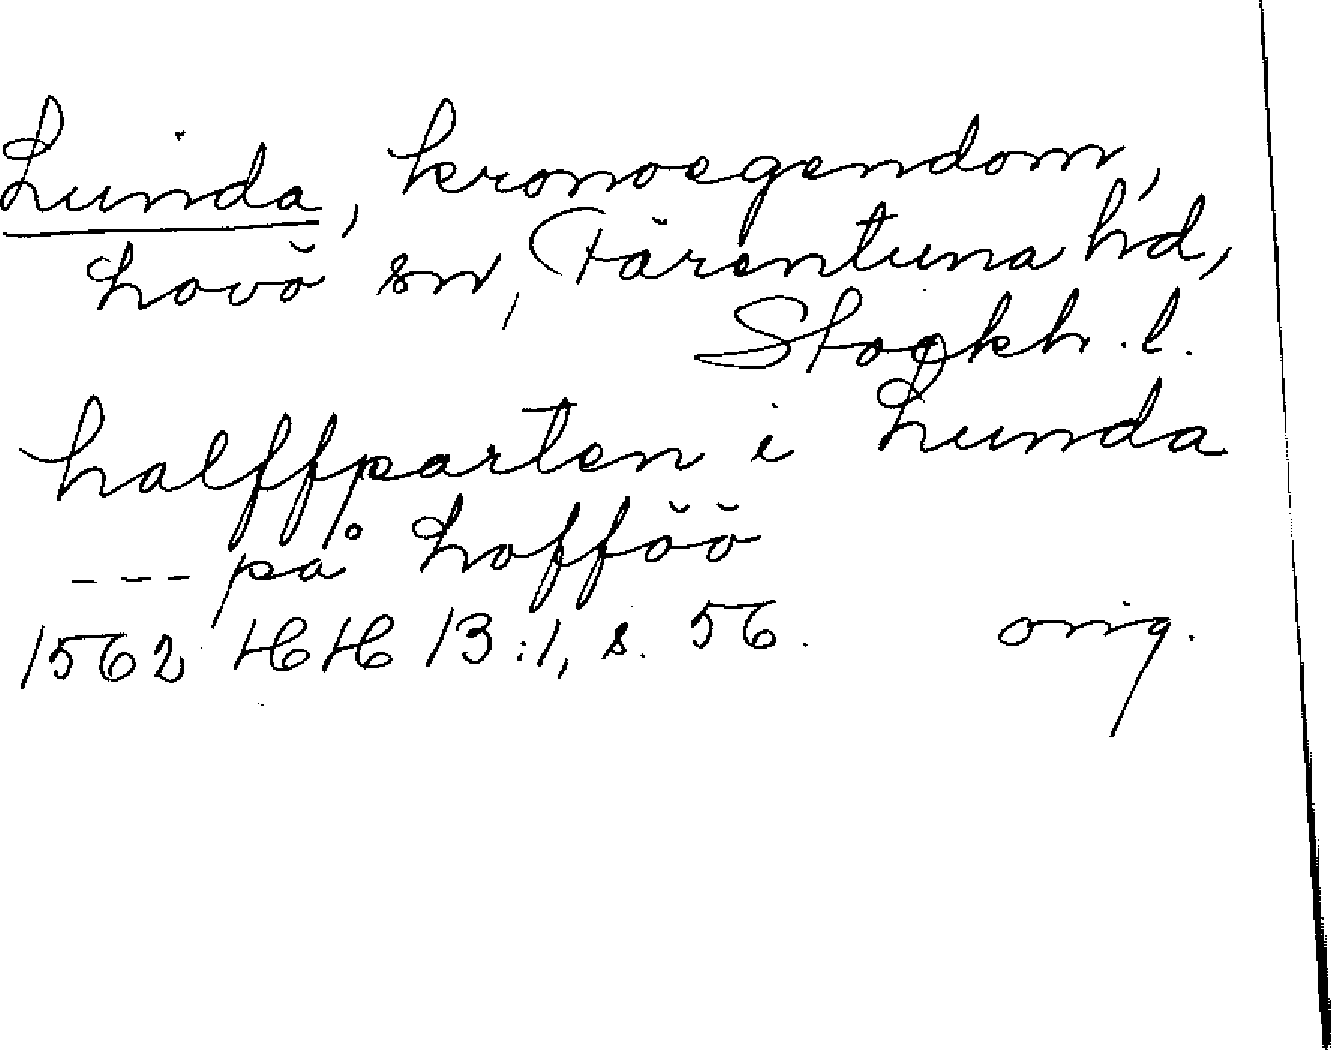 Lunda, kronoegendom,
Lovö sn, Färentuna hd,
Stockh. l.
halffparten i Lunda
--- på Lofföö
1562 HH 13:1, s. 56. orig.